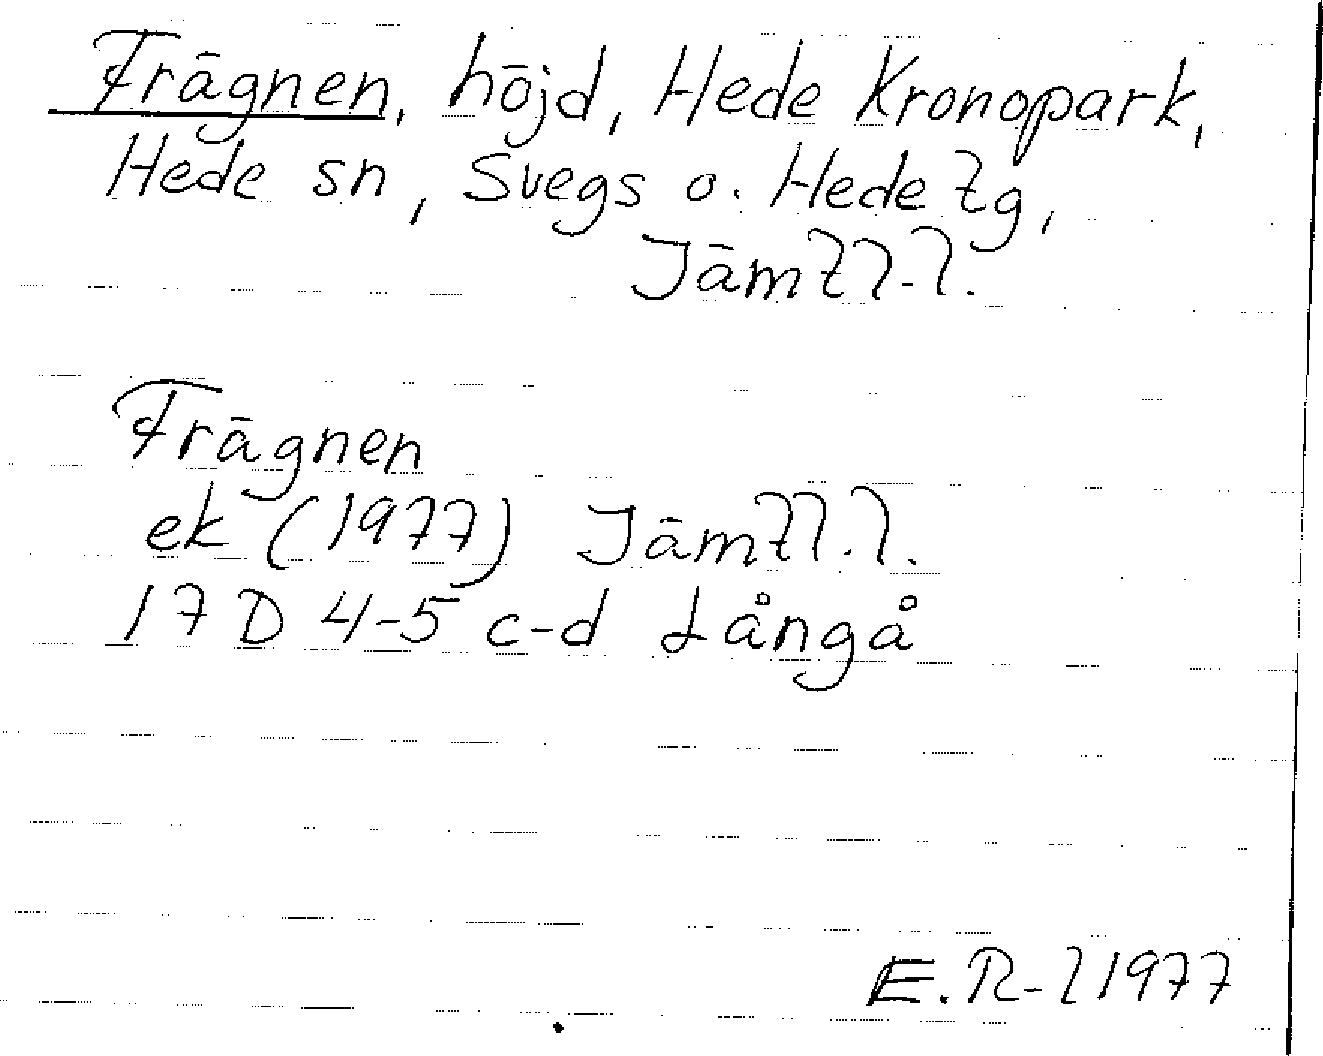 Frägnen, höjd, Hede Kronopark,
Hede sn, Svegs o. Hede tg,
Jämtl.l.
Frägnen
ek (1977) Jämtl.l.
17 D 4-5 c-d Långå
E.R-l 1977